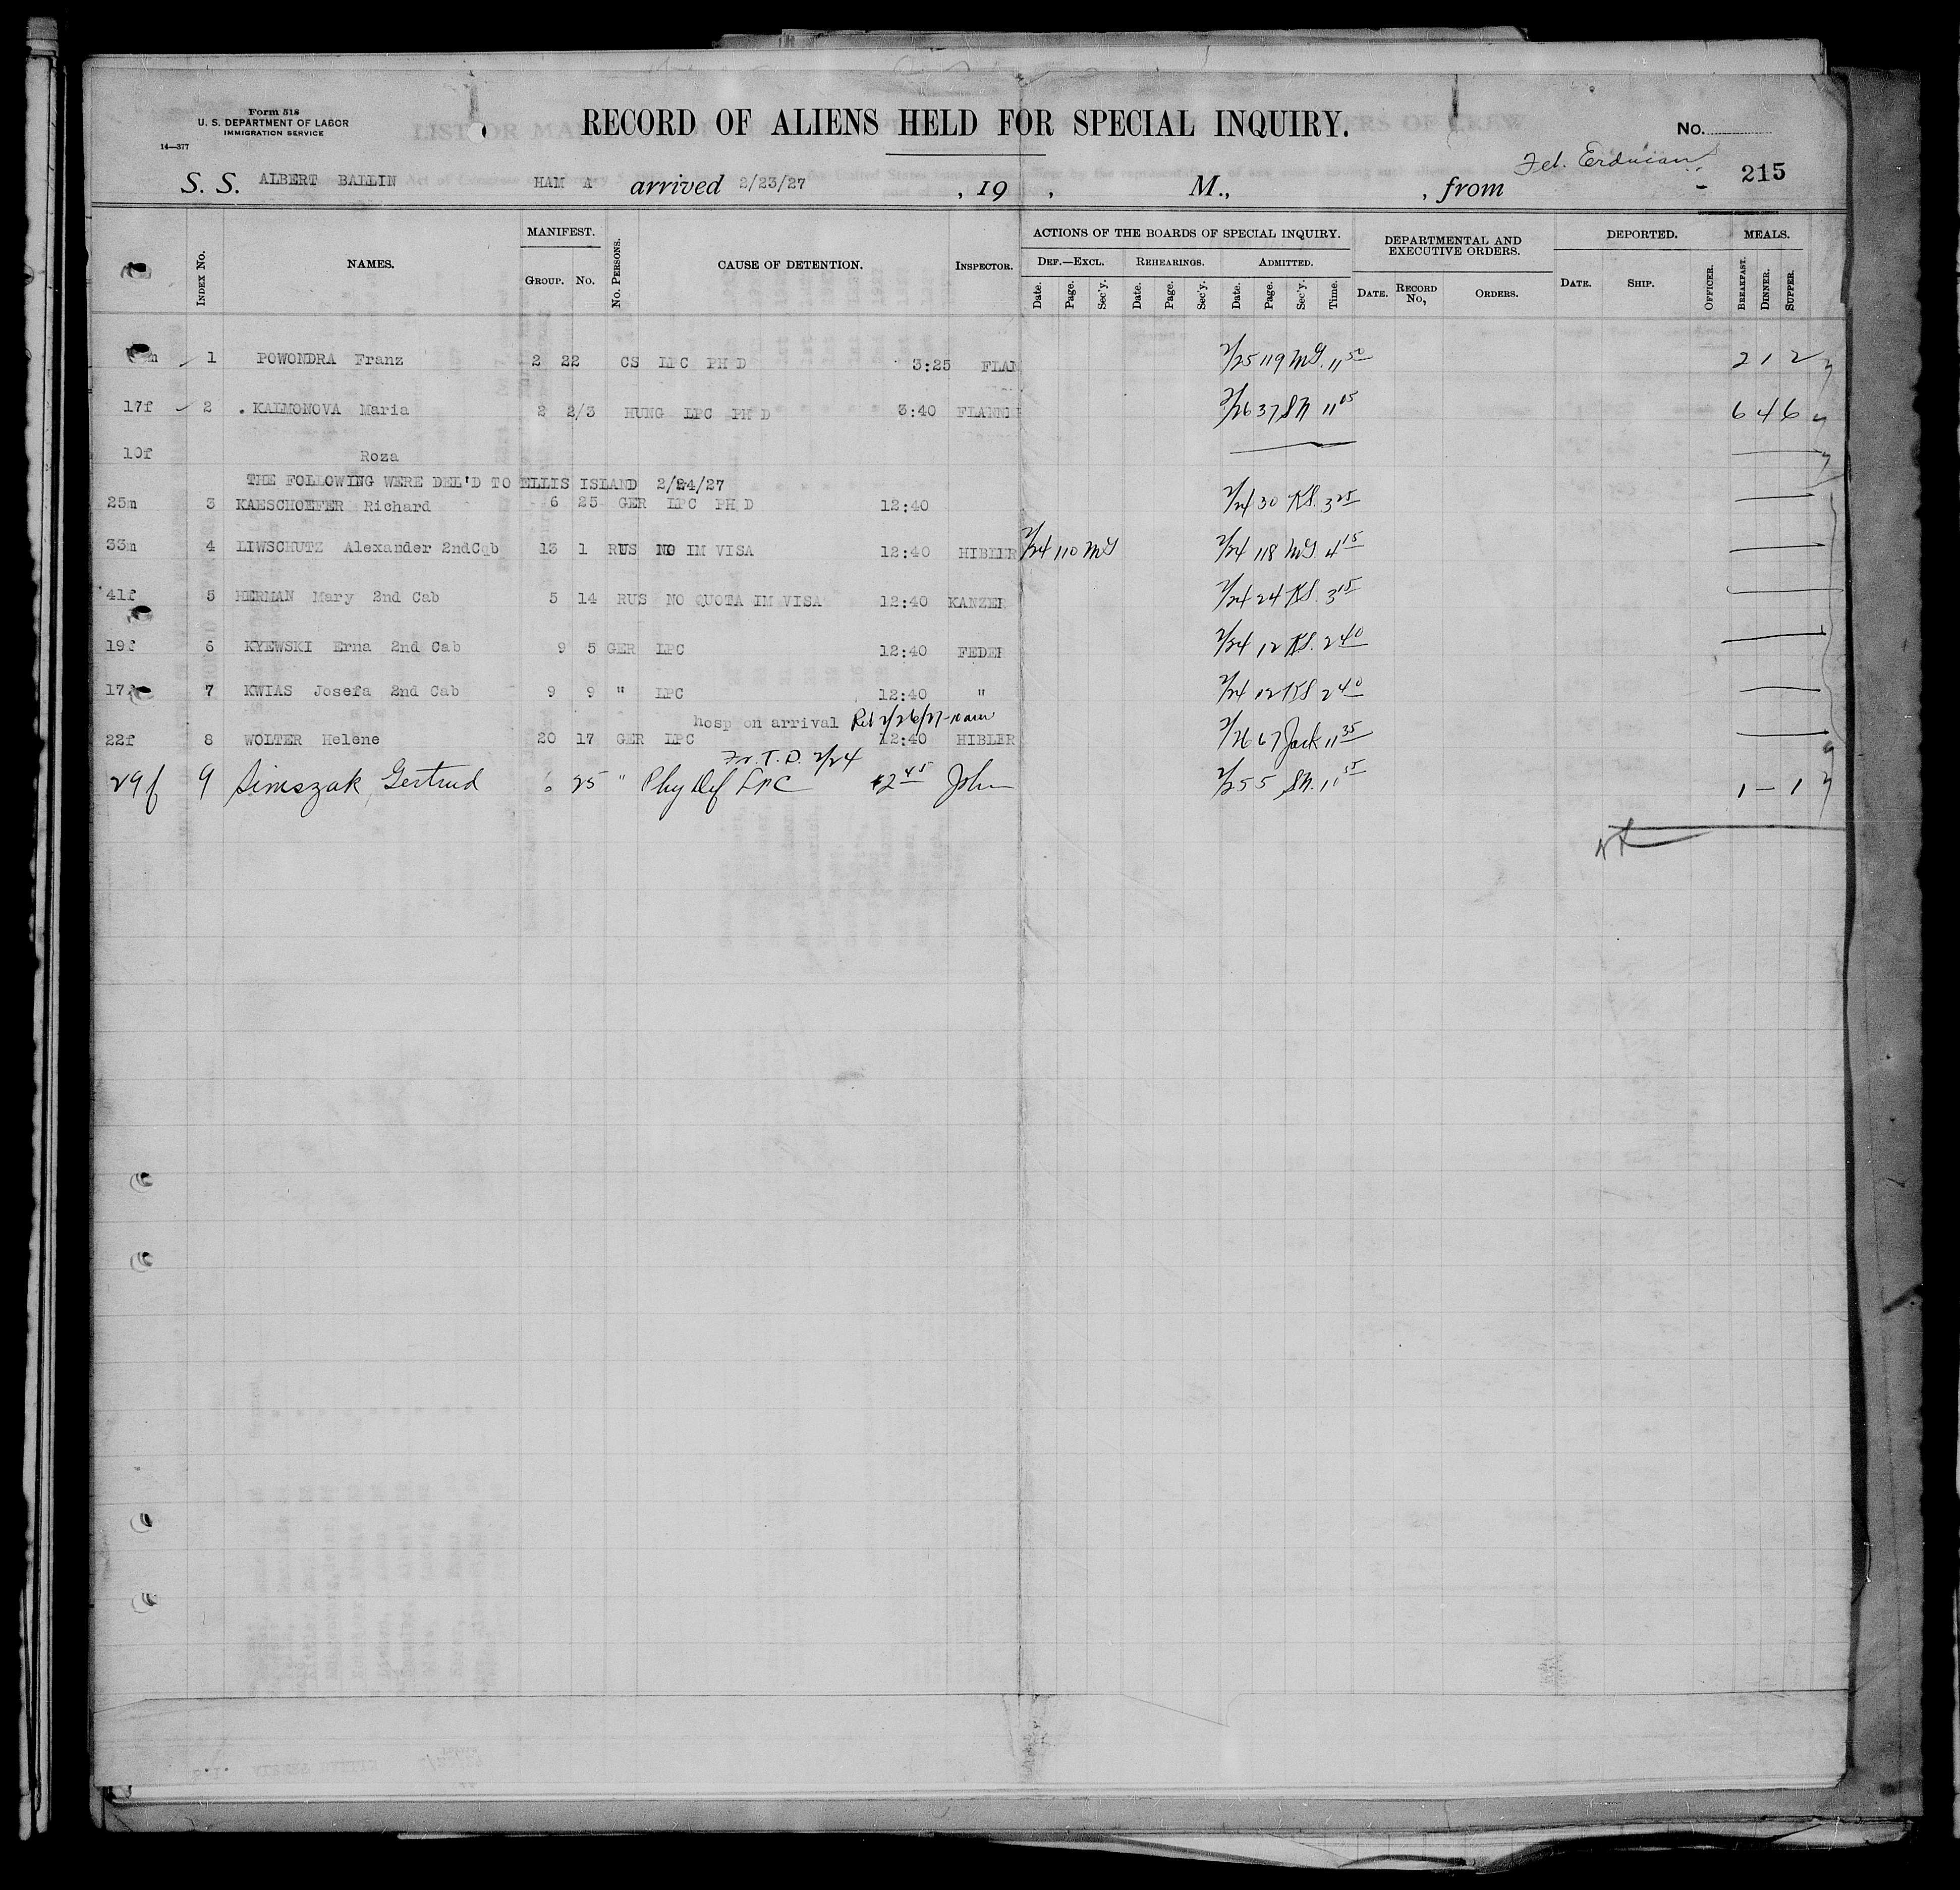 Form 518
U. S. DEPARTMENT OF LABOR
IMMIGRATION SERVICE
14—377
RECORD OF ALIENS HELD FOR SPECIAL INQUIRY.
No.
S. S. ALBERT BALLIN HAM A arrived 2/23/27 , 19 , M., , from 215
INDEX No. NAMES. MANIFEST. GROUP. No. No. PERSONS. CAUSE OF DETENTION. INSPECTOR. ACTIONS OF THE BOARDS OF SPECIAL INQUIRY. DEF.—EXCL. Date. Page. Sec'y. REHEARINGS. Date. Page. Sec'y. ADMITTED. Date. Page. Sec'y. Time. DEPARTMENTAL AND EXECUTIVE ORDERS. DATE. RECORD No, ORDERS. DEPORTED. DATE. SHIP. OFFICER. MEALS. BREAKFAST. DINNER. SUPPER.
m 1 POWONDRA Franz 2 22 CS LPC PH D 3:25 FLAN 2/25 119 MG. 11 50 2 1 2
17f 2 . KALMONOVA Maria 2 2/3 HUNG LPC PH D 3:40 FLANN 2/26 37 SN 11 05 6 4 6
10f Roza
THE FOLLOWING WERE DEL'D TO ELLIS ISLAND 2/24/27
25m 3 KAESCHOEFER Richard 6 25 GER LPC PH D 12:40 2/24 30 KS. 3 25
33m 4 LIWSCHUTZ Alexander 2ndCqb 13 1 RUS NO IM VISA 12:40 HIBLER 2/24 110 MG 2/24 118 MG 4 15
41f 5 HERMAN Mary 2nd Cab 5 14 RUS NO QUOTA IM VISA 12:40 KANZER 2/24 24 KS. 3 15
19f 6 KYEWSKI Erna 2nd Cab 9 5 GER LPC 12:40 FEDER 2/24 12 KS. 2 40
17 7 KWIAS Josefa 2nd Cab 9 9 " LPC 12:40 " 2/24 12 KS 2 40
hosp on arrival Rel 2/26/27
22f 8 WOLTER Helene 20 17 GER LPC 12:40 HIBLER 2/26 67 Jack 11 35
Fr. T. D. 2/24
29f 9 Simszak, Gertrud 6 25 " Phy Def LPC 2 45 John 2/25 5 SN. 11 55 1 — 1